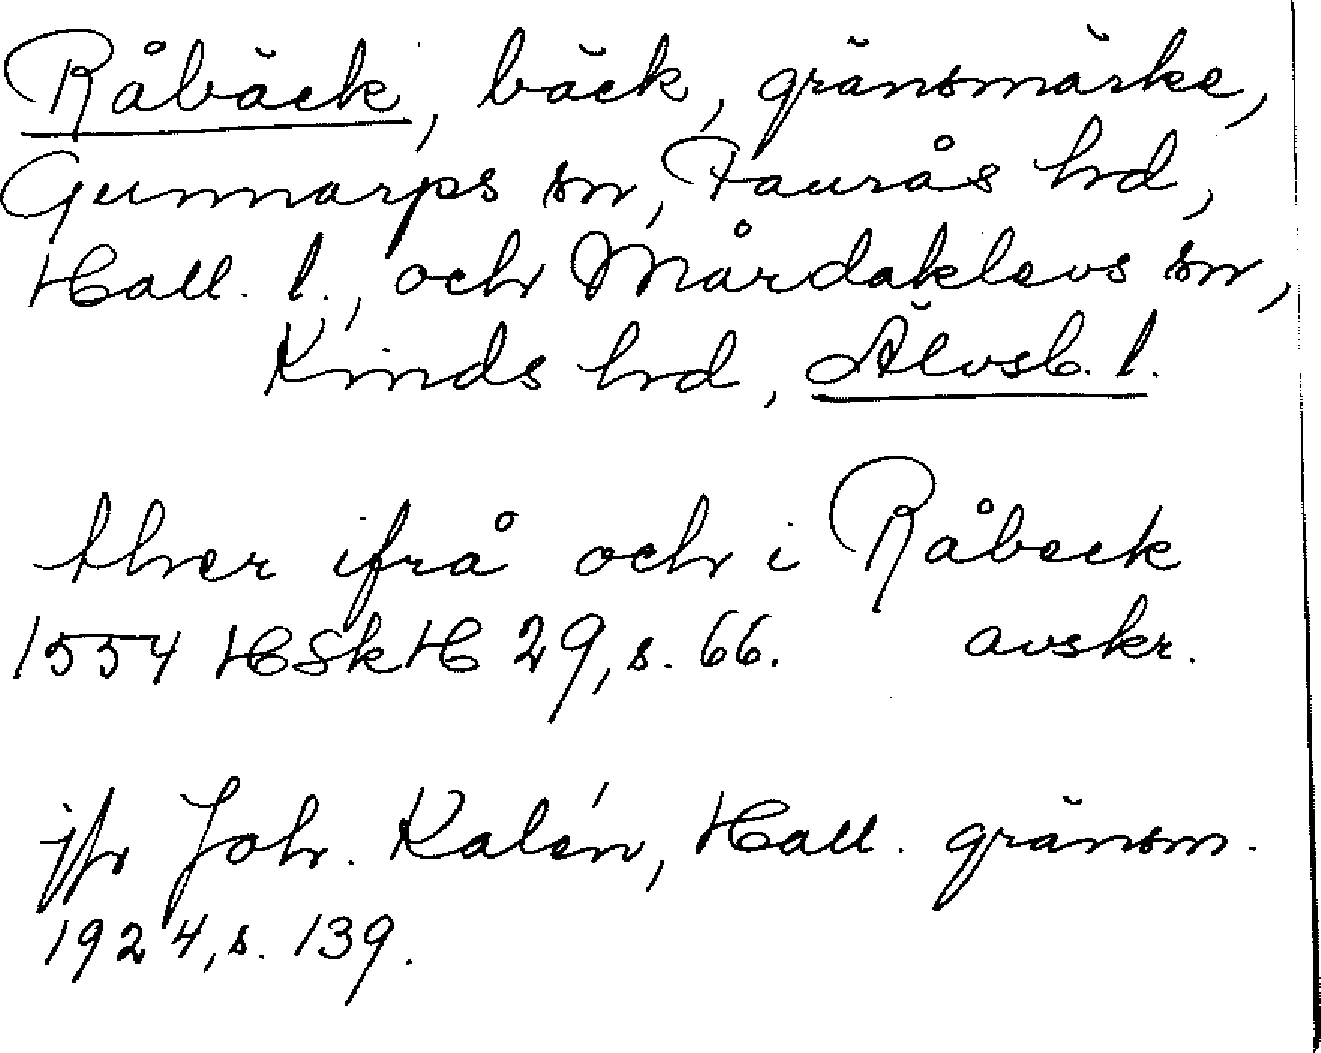 Råbäck, bäck, gränsmärke,
Gunnarps sn, Faurås hd,
Hall. l., och Mårdaklevs sn,
Kinds hd, Älvsb. l.
ther ifrå och i Råbeck
1554 HSkH 29, s. 66. avskr.
jfr Joh. Kalén, Hall. gränsm.
1924, s. 139.